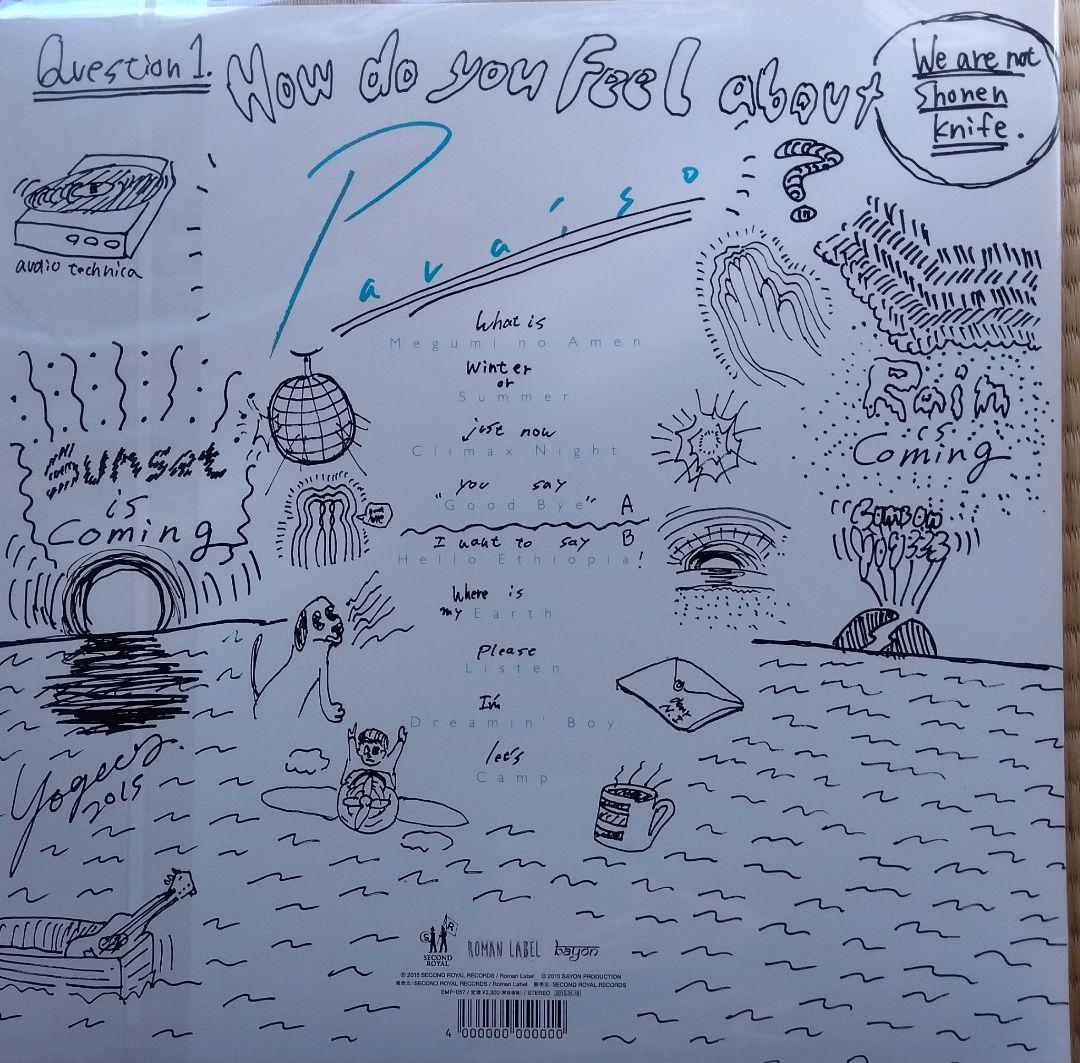 Question 1.
How do you feel about
We are not
Shonen
knife.
Paraíso
?
audio technica
What is
Megumi no Amen
Winter
or
Summer
just now
Climax Night
you say
"Good Bye"
A
B
I want to say
Hello Ethiopia!
Where is
my Earth
Please
Listen
I'm
Dreamin' Boy
let's
Camp
is
Coming
Rain
is
Coming
Yogees
2015
S R
SECOND
ROYAL
ROMAN LABEL
bayon
℗ 2015 SECOND ROYAL RECORDS / Roman Label © 2015 BAYON PRODUCTION
発売元: SECOND ROYAL RECORDS / Roman Label 販売元: SECOND ROYAL RECORDS
/ 定価 ¥2,300 (税抜価格) / STEREO 2015.04.18
4 000000 000000